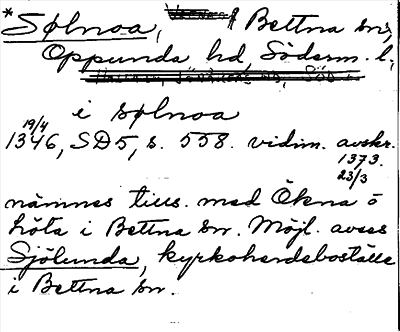 *Sølnoa, Bettna sn,
Oppunda hd, Söderm. l.,
i sølnoa
19/4
1346, SD5, s. 558. vidim. avskr.
1373.
23/3
nämnes tills. med Ökna ö
höta i Bettna sn. Möjl. avses
Sjölunda, kyrkoherdeboställe
i Bettna sn.